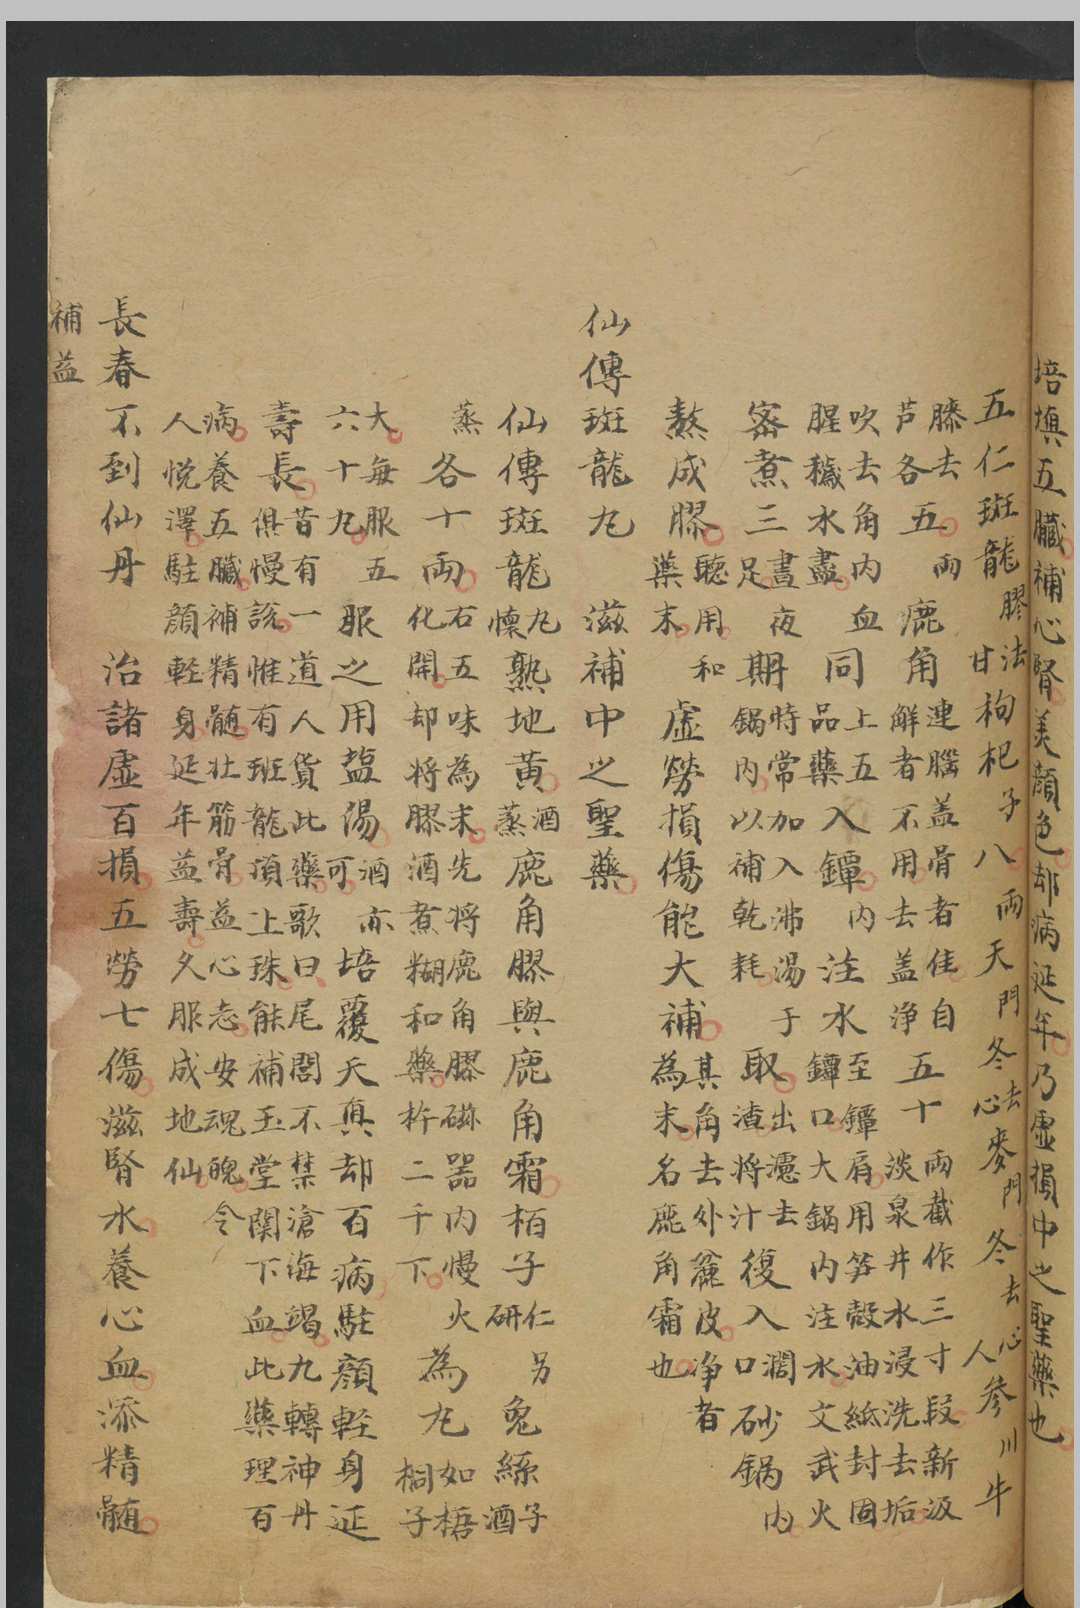 培填五臟補心腎美顏色却病延年乃虛損中之聖藥也
五仁斑龍膠法甘枸杞子八兩天門冬去心麥門冬去心人參川牛
膝去芦各五兩鹿角連腦盖骨者佳自解者不用去盖净五十兩截作三寸段新汲淡泉井水浸洗去垢
吹去角内血腥穢水盡同上五品藥入鐔内注水至鐔肩用笋殼油紙封固鐔口大鍋内注水文武火
密煮三晝夜足期時常加入沸湯于鍋内以補乾耗取出濾去渣將汁復入濶口砂鍋内
熬成膠聽用和藥末虛勞損傷能大補其角去外麄皮净者為末名鹿角霜也
仙傳斑龍丸 滋補中之聖藥
仙傳斑龍丸懷熟地黃酒蒸鹿角膠與鹿角霜栢子仁另研兔絲子酒
蒸各十兩右五味為末先將鹿角膠磁器内慢火化開却将膠酒煮糊和藥杵二千下為丸如梧桐子
大每服五六十丸服之用塩湯酒亦可培覆天真却百病駐顏輕身延
壽長昔有一道人貨此藥歌曰尾閭不禁滄海竭九轉神丹俱慢説惟有班龍頂上珠能補玉堂関下血此藥理百
病養五臟補精髓壯筋骨益心志安魂魄令人悦澤駐顔輕身延年益壽久服成地仙
長春不到仙丹 治諸虛百損五勞七傷滋腎水養心血添精髓
補益